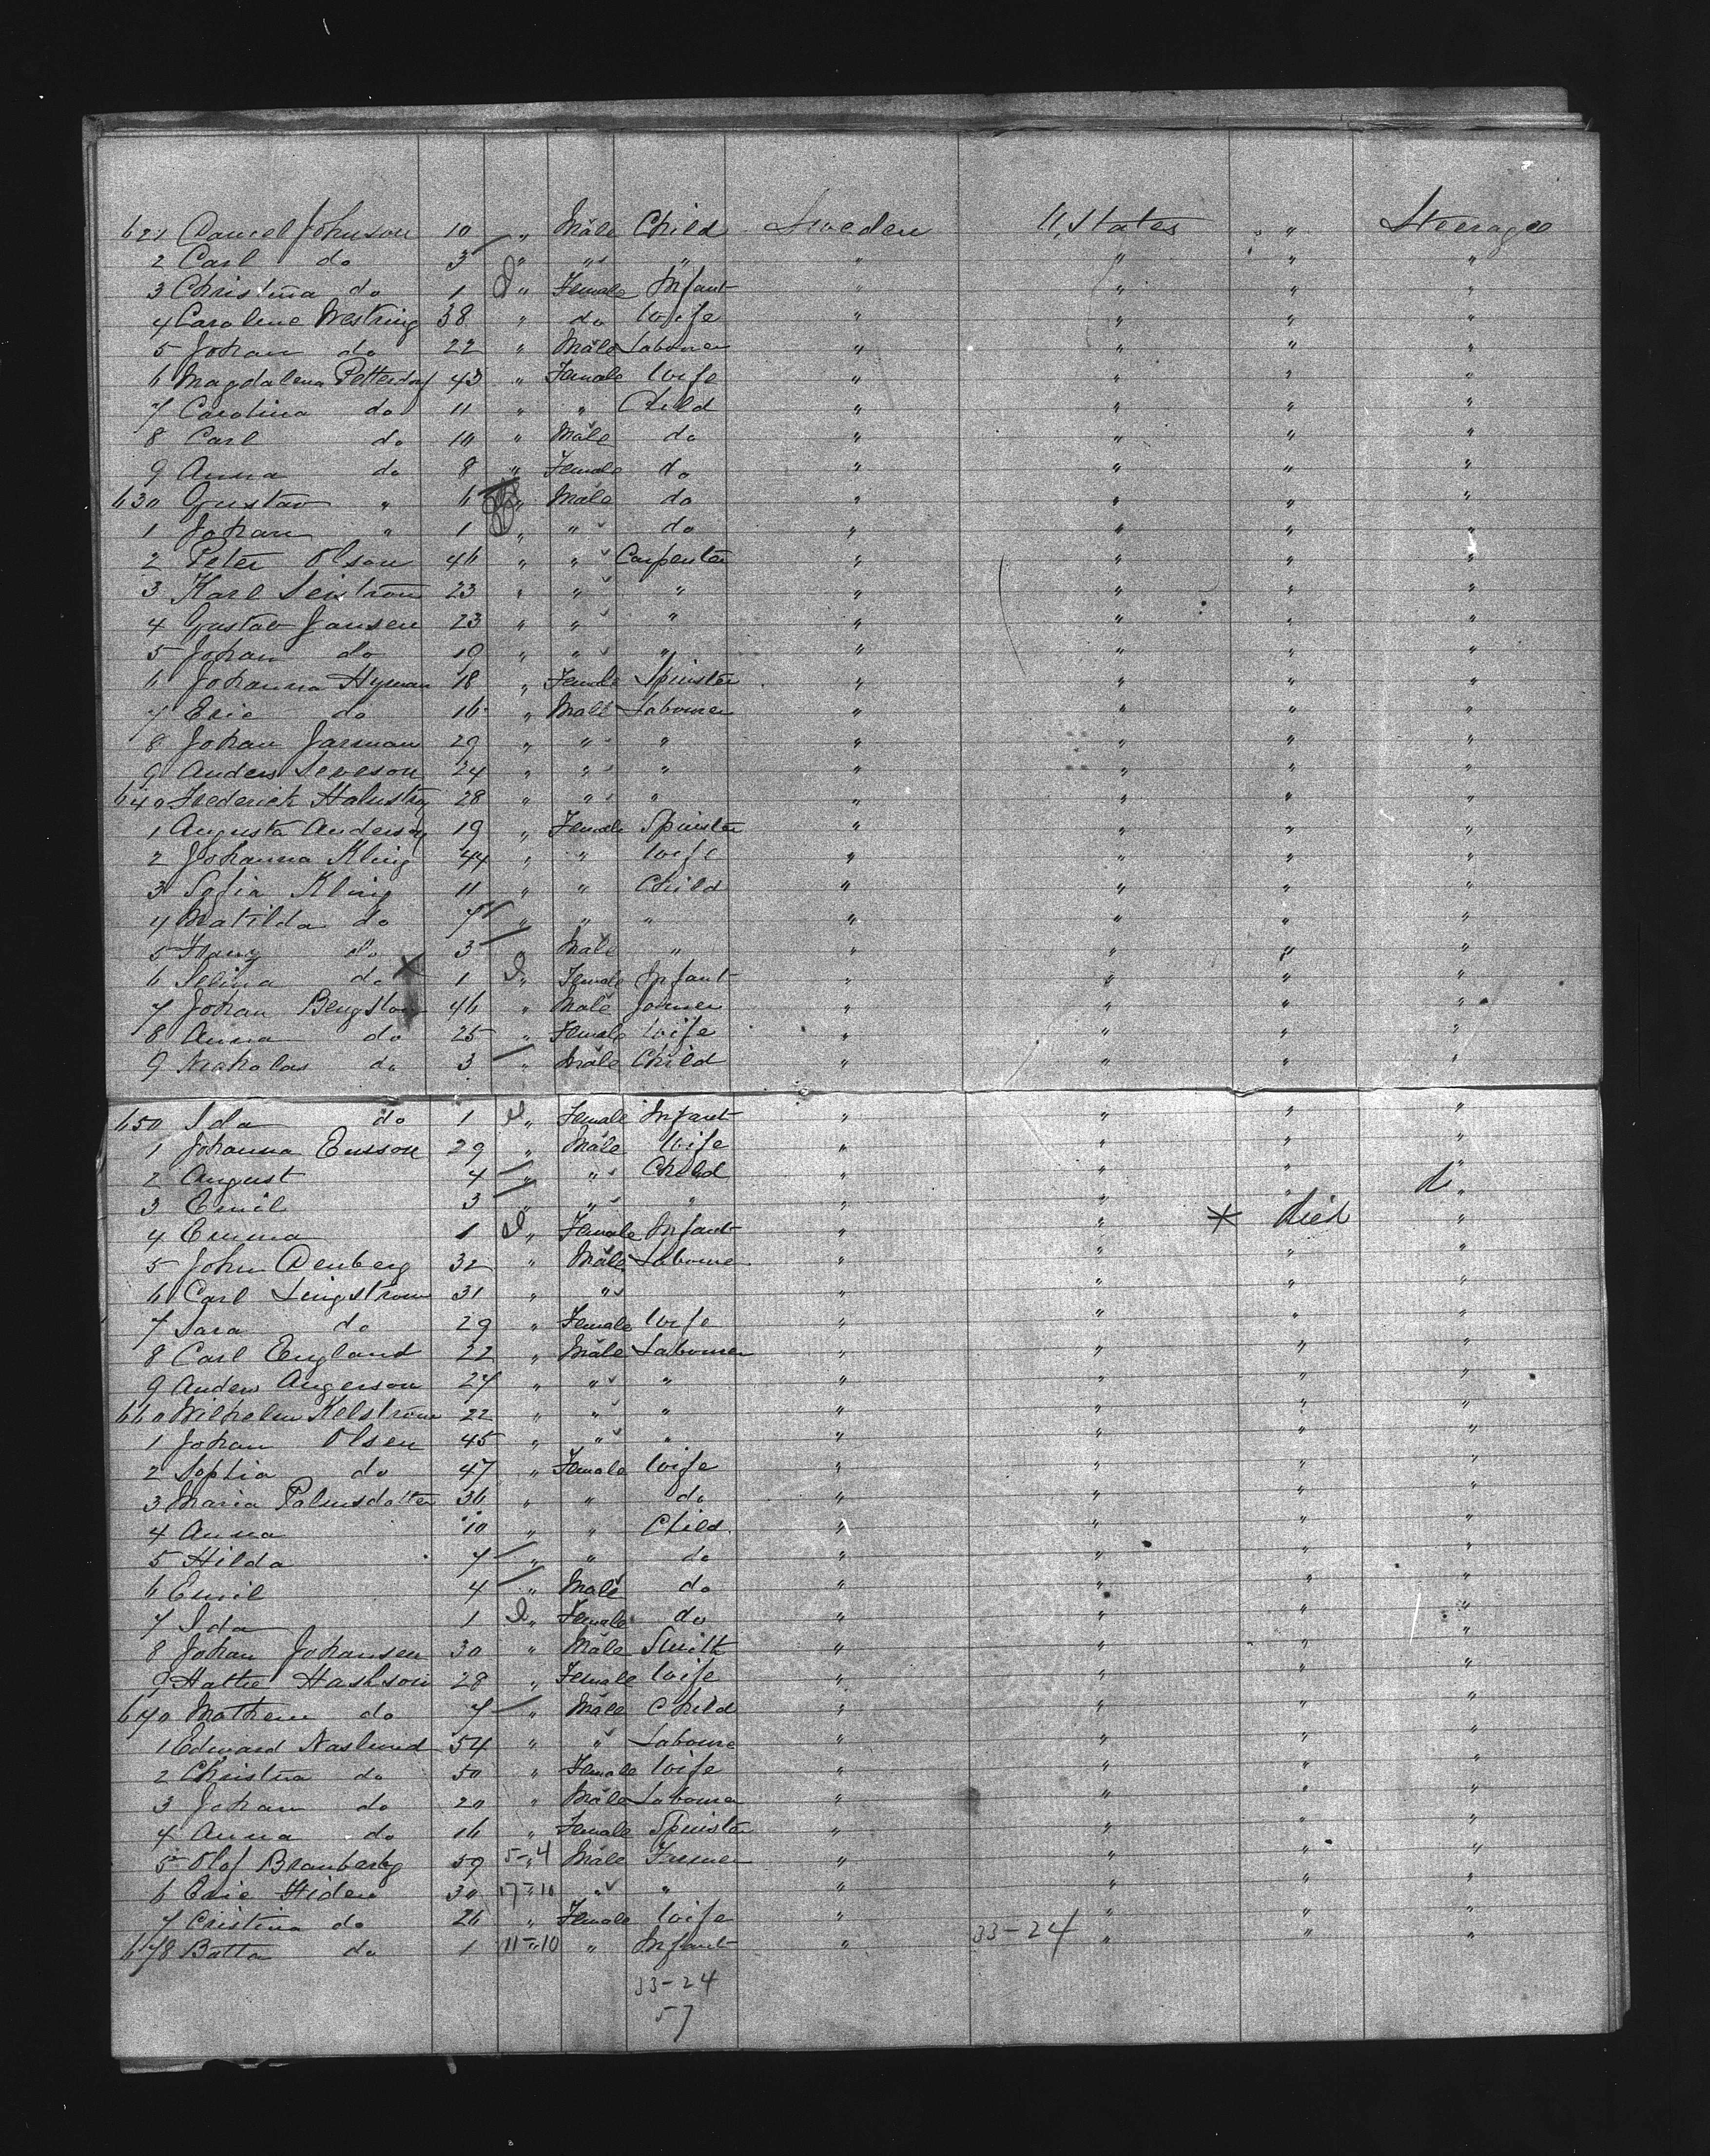 621 Daniel Johnson 10 " Male Child Sweden U. States " Steerage
2 Carl do 3 " " " " " " "
3 Christina do 1 " Female Infant " " " "
4 Caroline Westring 38 " do Wife " " " "
5 Johan do 22 " Male Labourer " " " "
6 Magdalena Petterdoy 43 " Female Wife " " " "
7 Carolina do 11 " " Child " " " "
8 Carl do 10 " Male do " " " "
9 Anna do 8 " Female do " " " "
630 Gustav " 6 " Male do " " " "
1 Johan " 1 " " do " " " "
2 Peter Olson 46 " " Carpenter " " " "
3 Karl 23 " " " " " " "
4 Gustav Jansen 23 " " " " " " "
5 Johan do 19 " " " " " " "
6 Johanna Hyman 18 " Female Spinster " " " "
7 Eric do 16 " Male Labourer " " " "
8 Johan Jarman 29 " " " " " " "
9 Anders Leveson 24 " " " " " " "
640 Frederick 28 " " " " " " "
1 Augusta Anderson 19 " Female Spinster " " " "
2 Johanna Kling 44 " " Wife " " " "
3 Sofia Kling 11 " " Child " " " "
4 Matilda do 7 " " " " " " "
5 Franz do 3 Male " " " " "
6 Selina do X 1 " Female Infant " " " "
7 Johan Bengston 46 " Male Joiner " " " "
8 Anna do 25 " Female Wife " " " "
9 Nicholas do 3 " Male Child " " " "
650 Ida do 1 " Female Infant " " " "
1 Johanna Eusson 29 " Male Wife " " " "
2 August 4 " " Child " " " "
3 Emil 3 " " " " " " "
4 Emma 1 " Female Infant " " * Died "
5 John Denberg 32 " Male Labourer " " " "
6 Carl Lingstrom 31 " " " " " "
7 Sara do 29 " Female Wife " " " "
8 Carl England 22 " Male Labourer " " " "
9 Anders Angerson 27 " " " " " " "
660 Wilhelm Kelstrom 22 " " " " " " "
1 Johan Olsen 45 " " " " " " "
2 Sophia do 47 " Female Wife " " " "
3 Maria Palmsdotter 36 " " do " " " "
4 Anna 10 " " Child " " " "
5 Hilda 7 " " do " " " "
6 Emil 4 " Male do " " " "
7 Ida 1 " Female do " " " "
8 Johan Johansen 30 " Male Smith " " " "
9 Hattie Hashson 28 " Female Wife " " " "
670 Mathew do 7 " Male Child " " " "
1 Edward Naslund 54 " " Labourer " " " "
2 Christina do 50 " Female Wife " " " "
3 Johan do 20 " Male Labourer " " " "
4 Anna do 16 " Female Spinster " " " "
5 Olof Branberg 59 5-4 Male " " " "
6 Eric Hiden 30 17-10 " " " " " "
7 Cristina do 26 " Female Wife " " " "
678 Batta do 1 11-10 " Infant " 33-24 " " "
33-24
57